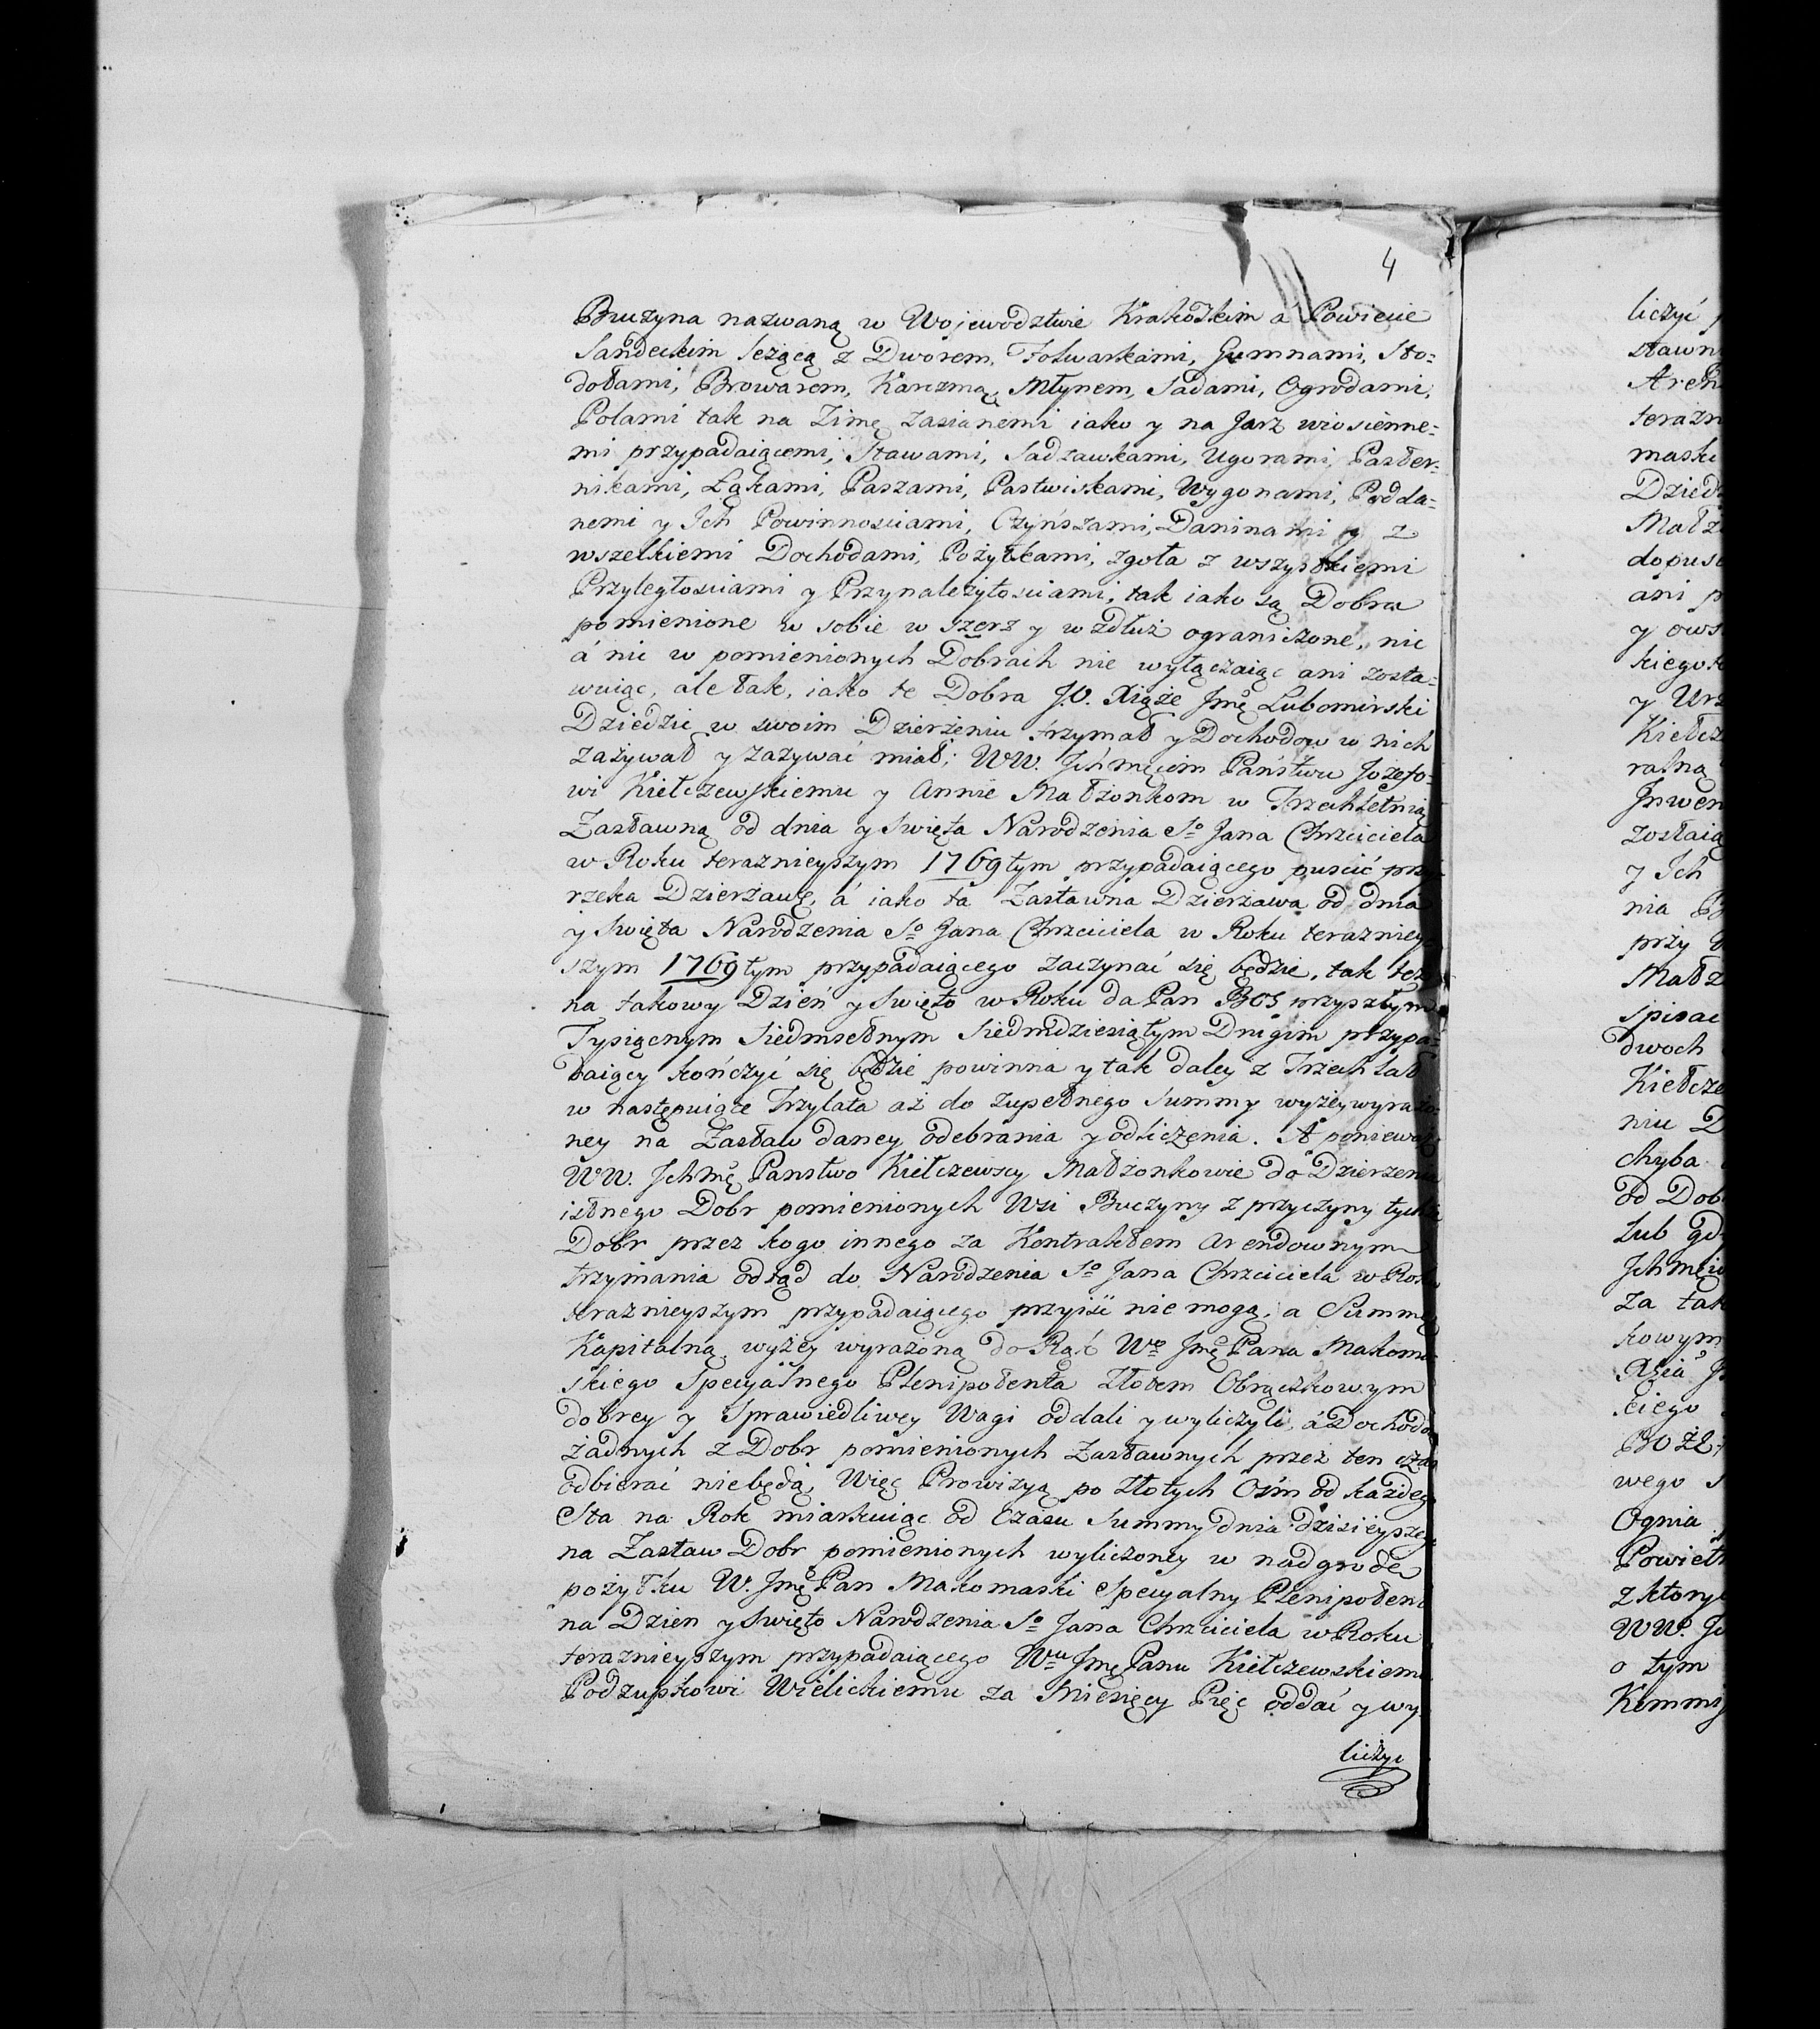 4
Buczyna nazwaną w Wojewodztwie Krakoskim á Powiecie
Sandeckim leżącą z Dworem, Folwarkami, Gumnami, Sto=
dołami, Browarem, Karczmą, Młynem, Sadami, Ogrodami,
Polami tak na Zimę zasianemi iako y na Jarz wiosienne=
mi przypadaiącemi, Stawami, Sadzawkami, Ugorami, Paster=
nikami, Łąkami, Paszami, Pastwiskami, Wygonami, Podda=
nemi y Ich Powinnosciami, Czyńszami, Daninami y z
wszelkiemi Dochodami, Pożytkami, zgoła z wszystkiemi
Przyległosciami y Przynależytosciami, tak iako są Dobra
pomienione w sobie w szerz y w zdłuż ograniczone, nic
á nic w pomienionych Dobrach nie wyłączaiąc ani zosta=
wuiąc, ale tak, iako te Dobra J.O. Xiąże Jmę Lubomirski
Dziedzic w swoim Dzierżeniu trzymał y Dochodow w nich
zażywał y zażywać miał; WW. Jchmęciom Państwu Jozefo=
wi Kiełczewskiemu y Annie Małżonkom w Trzechletnią
Zastawną od dnia y Swięta Narodzenia So Jana Chrzciciela
w Roku teraznieyszym 1769tym przypadaiącego puscić przy
rzeka Dzierżawę, á iako ta Zastawna Dzierżawa od dnia
y Swięta Narodzenia So Jana Chrzciciela w Roku terazniey
szym 1769tym przypadaiącego zaczynać się będzie, tak też
na takowy Dzień y Swięto w Roku da Pan BOG przyszłym
Tysiącnym Siedmsetnym Siedmdziesiątym Drugim przypa=
daiący kończyć się będzie powinna y tak daley z Trzech lat
w następuiące Trzylata aż do zupełnego Summy wyżey wyrażo
ney na Zastaw daney odebrania y odliczenia. A ponieważ
WW. Jchmę Panstwo Kiełczewscy Małżonkowie do Dzierzenia
istnego Dobr pomienionych Wsi Buczyny z przyczyny tychże
Dobr przez kogo innego za Kontraktem Arendownym
trzymania odtąd do Narodzenia So Jana Chrzciciela w Roku
teraznieyszym przypadaiącego przyiść nie mogą, a Summę
Kapitalną wyżey wyrażoną do Rąk Wo Jmę Pana Makoma
skiego Specyalnego Plenipotenta Złotem Obrączkowym
dobrey y Sprawiedliwey Wagi oddali y wyliczyli, á Dochodow
żadnych z Dobr pomienionych Zastawnych przez ten czas
odbierać niebędą, Więc Prowizyą po Złotych Ośm od każdego
Sta na Rok miarkuiąc od Czasu Summy dnia dzisieyszego
na Zastaw Dobr pomienionych wyliczoney w nadgrodę
pożytku W. Jmę Pan Makomaski Specyalny Plenipotent
na Dzien y Swięto Narodzenia So Jana Chrzciciela w Roku
teraznieyszym przypadaiącego Wu Jmę Panu Kiełczewskiemu
Podzupkowi Wielickiemu za Miesięcy Pięc oddać y wy
liczyc
liczyć
stawn
Aren
terazn
maski
Dziedz
Małż
dopusc
ani p
y ows
kiegok
y Urz
Kiełcz
ralną
Jnwen
zostaią
y Ich
nia
przy
Małż
spisac
dwoch
Kiełcze
niu D
chyba
od Dob
lub gd
Jchmęc
za tak
kowym
Xcia
ciego
BOZE
wego
Ognia
Powiet
z ktory
WW. Jc
o tym
Kommi